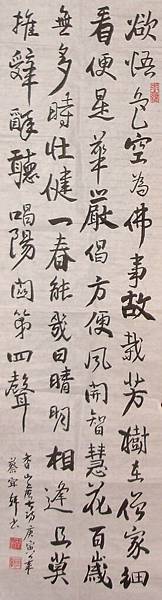 欲悟色空為佛事故栽芳樹在僧家細
看便是華嚴偈方便風開智慧花百歲
無多時壯健一春能幾日晴明相逢且莫
推辭醉聽唱陽關第四聲
香山居士詩庚寅年
蔡宜書